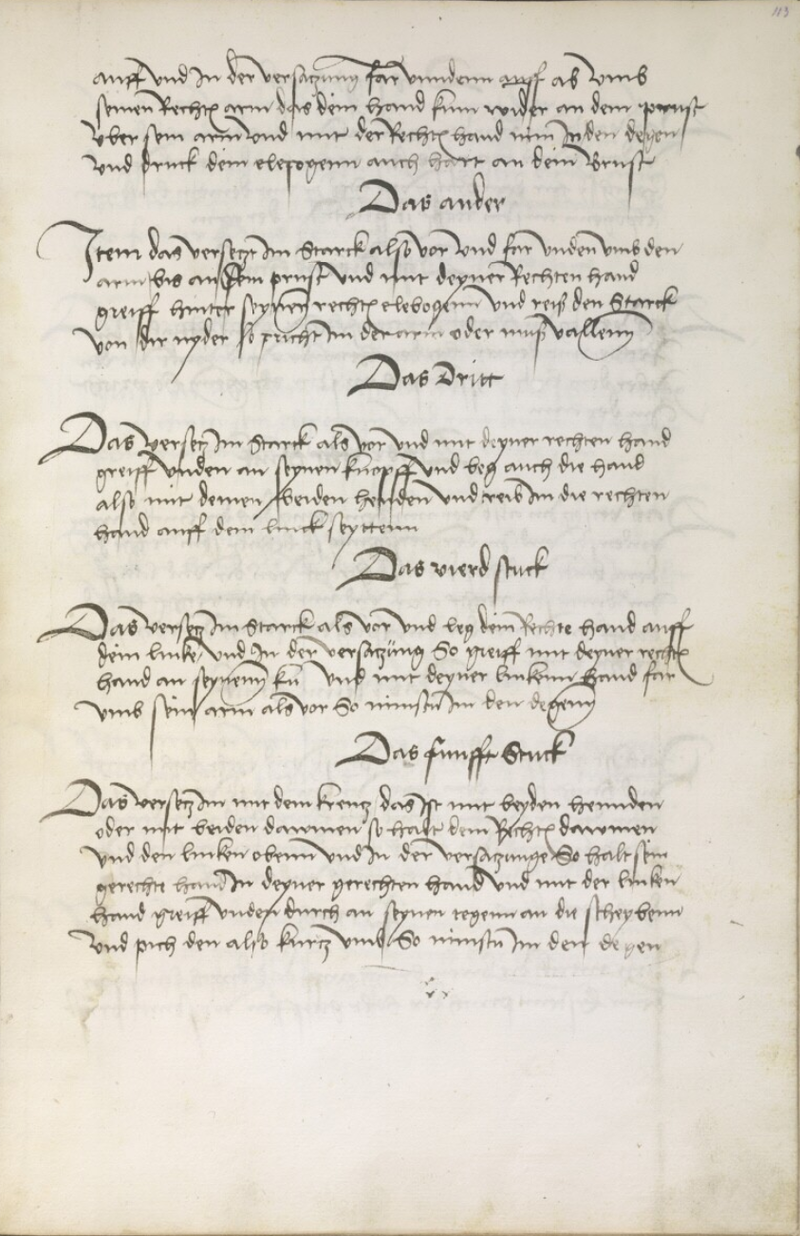 113
auff vnd In der versatzung far vnndenn auff ab vmb
seinen Rechten arm das dein hand kum wider an dein prust
vber sein arm vnd mit der Rechten hand nim In den degen
vnd druck dein elepogenn auch hart an dein Brust
Das ander
Item das versetzt Im Starck also vor vnd far vnden vmb den
arm bis an sein prust vnd mit deyner Rechten hand
greiff hinter seynen rechten elebogenn vnd reiß den Starck
von dir nyder so pricht Im der arm oder muß vallenn
Das Dritt
Das versetz Im Starck als vor vnd mit deyner rechten hand
greiff vnden an seynen knopff vnd leg auch die hand
also mit deinen beiden henden vnd reib Im die rechten
hand auff dein linck seyttenn
Das vierd stuck
Das versetz Im Starck als vor vnd leg dein Rechte hand auff
dein linke vnd In der versatzung So greiff mit deyner rechten
hand an seynenn vnd mit deyner linkenn hand far
vmb sein arm als vor So nimstu Im den degenn
Das funfft Stuck
Das versetz Im mit dem kreutz das Ist mit beyden hennden
oder mit beiden dawmen so halt dein Rechten dawmen
vnd den linken obenn vnd In der versatzunge So halt sein
gerechte hand In deyner gerechten hand vnd mit der linken
hand greiff vnden durch an seynen tegenn an die scheybenn
vnd pich den also kurtz vmb So nimstu Im den degen